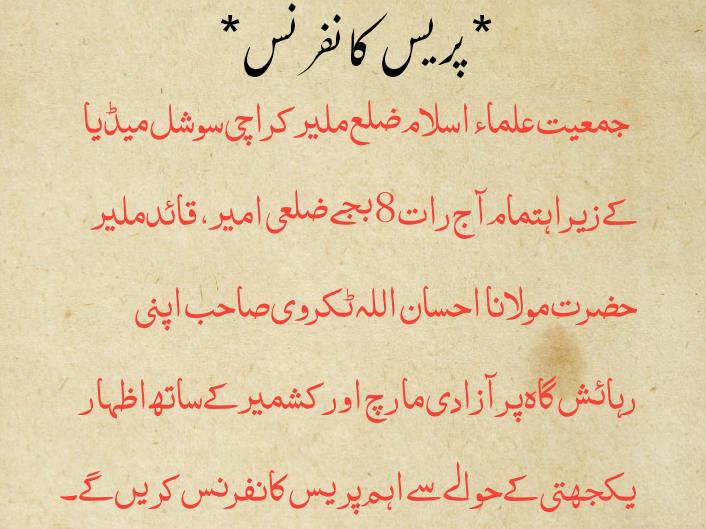 *پریس کانفرنس*
جمعیت علماء اسلام ضلع ملیر کراچی سوشل میڈیا
کے زیر اہتمام آج رات 8 بجے ضلعی امیر، قائد ملیر
حضرت مولانا احسان اللہ ٹکروی صاحب اپنی
رہائش گاہ پر آزادی مارچ اور کشمیر کے ساتھ اظہار
یکجھتی کے حوالے سے اہم پریس کانفرنس کریں گے۔